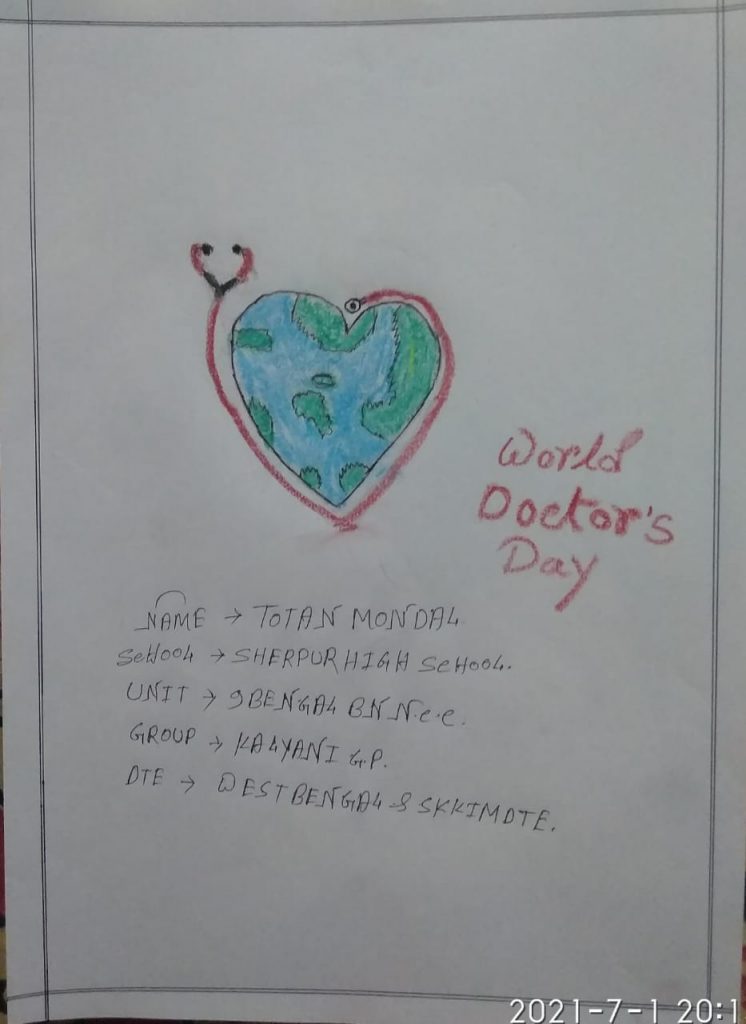 World
Doctor's
Day
NAME → TOTAN MONDAL
SCHOOL → SHERPUR HIGH SCHOOL.
UNIT → 9 BENGAL BN N.C.C.
GROUP → KALYANI GP.
DTE → WEST BENGAL & SKKIM DTE.
2021-7-1 20:1